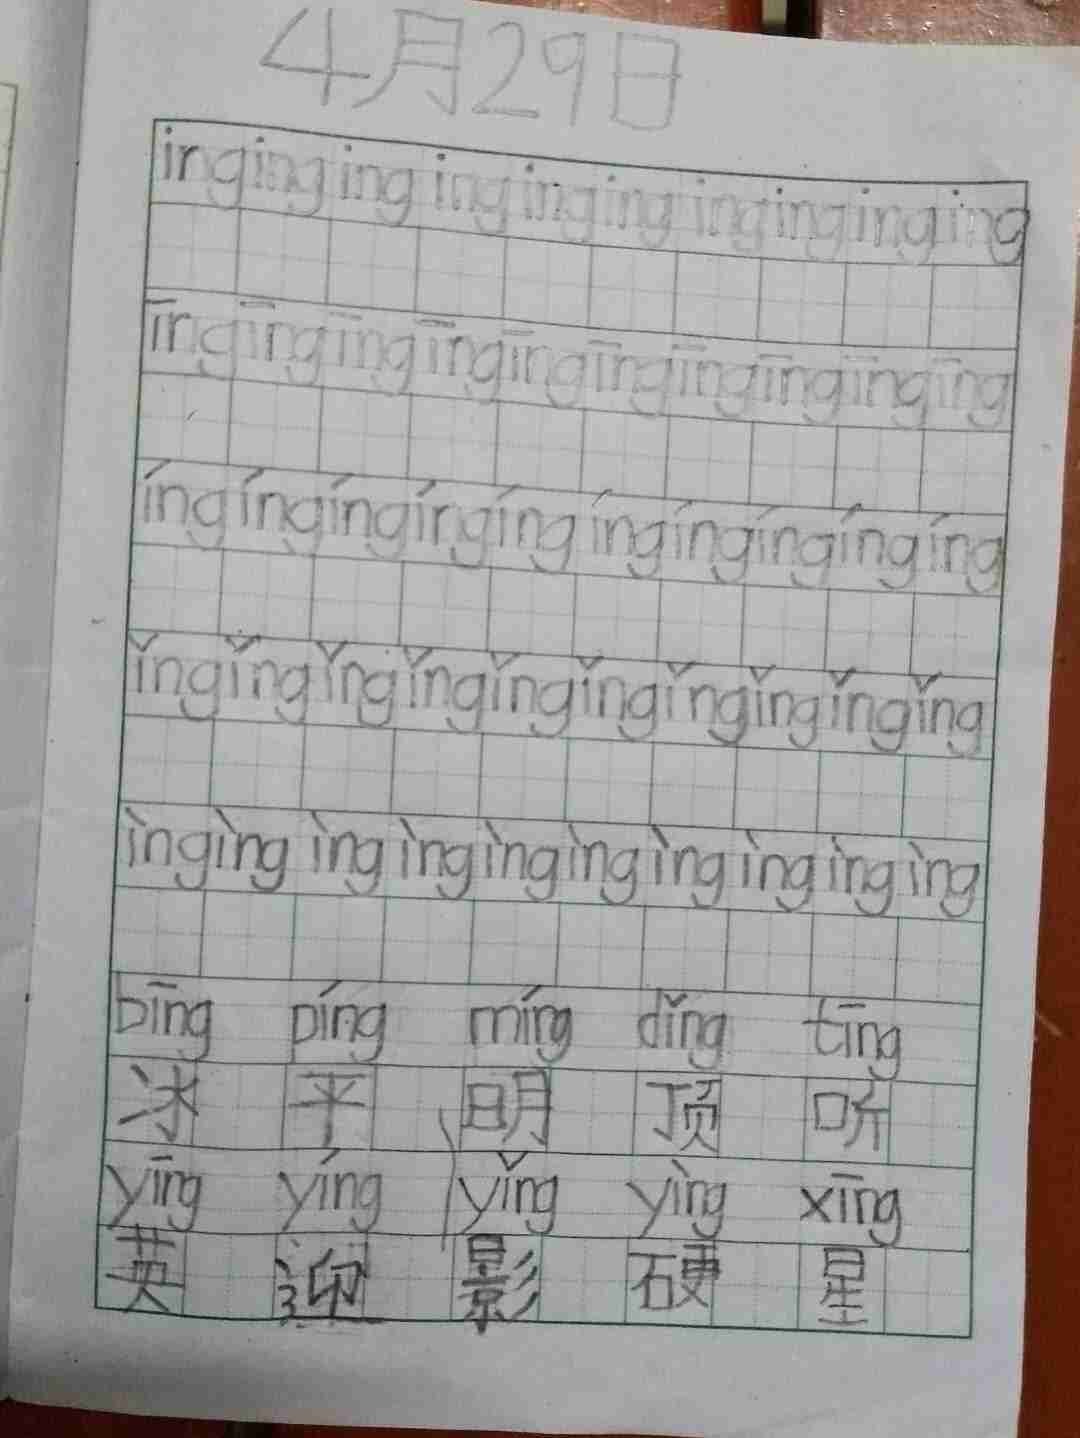 4月29日
ing ing ing ing ing ing ing ing ing ing
īng īng īng īng īng īng īng īng īng īng
íng íng íng íng íng íng íng íng íng íng
ǐng ǐng ǐng ǐng ǐng ǐng ǐng ǐng ǐng ǐng
ìng ìng ìng ìng ìng ìng ìng ìng ìng ìng
bīng píng míng dǐng tīng
冰 平 明 顶 听
yīng yíng yǐng yìng xīng
英 迎 影 硬 星